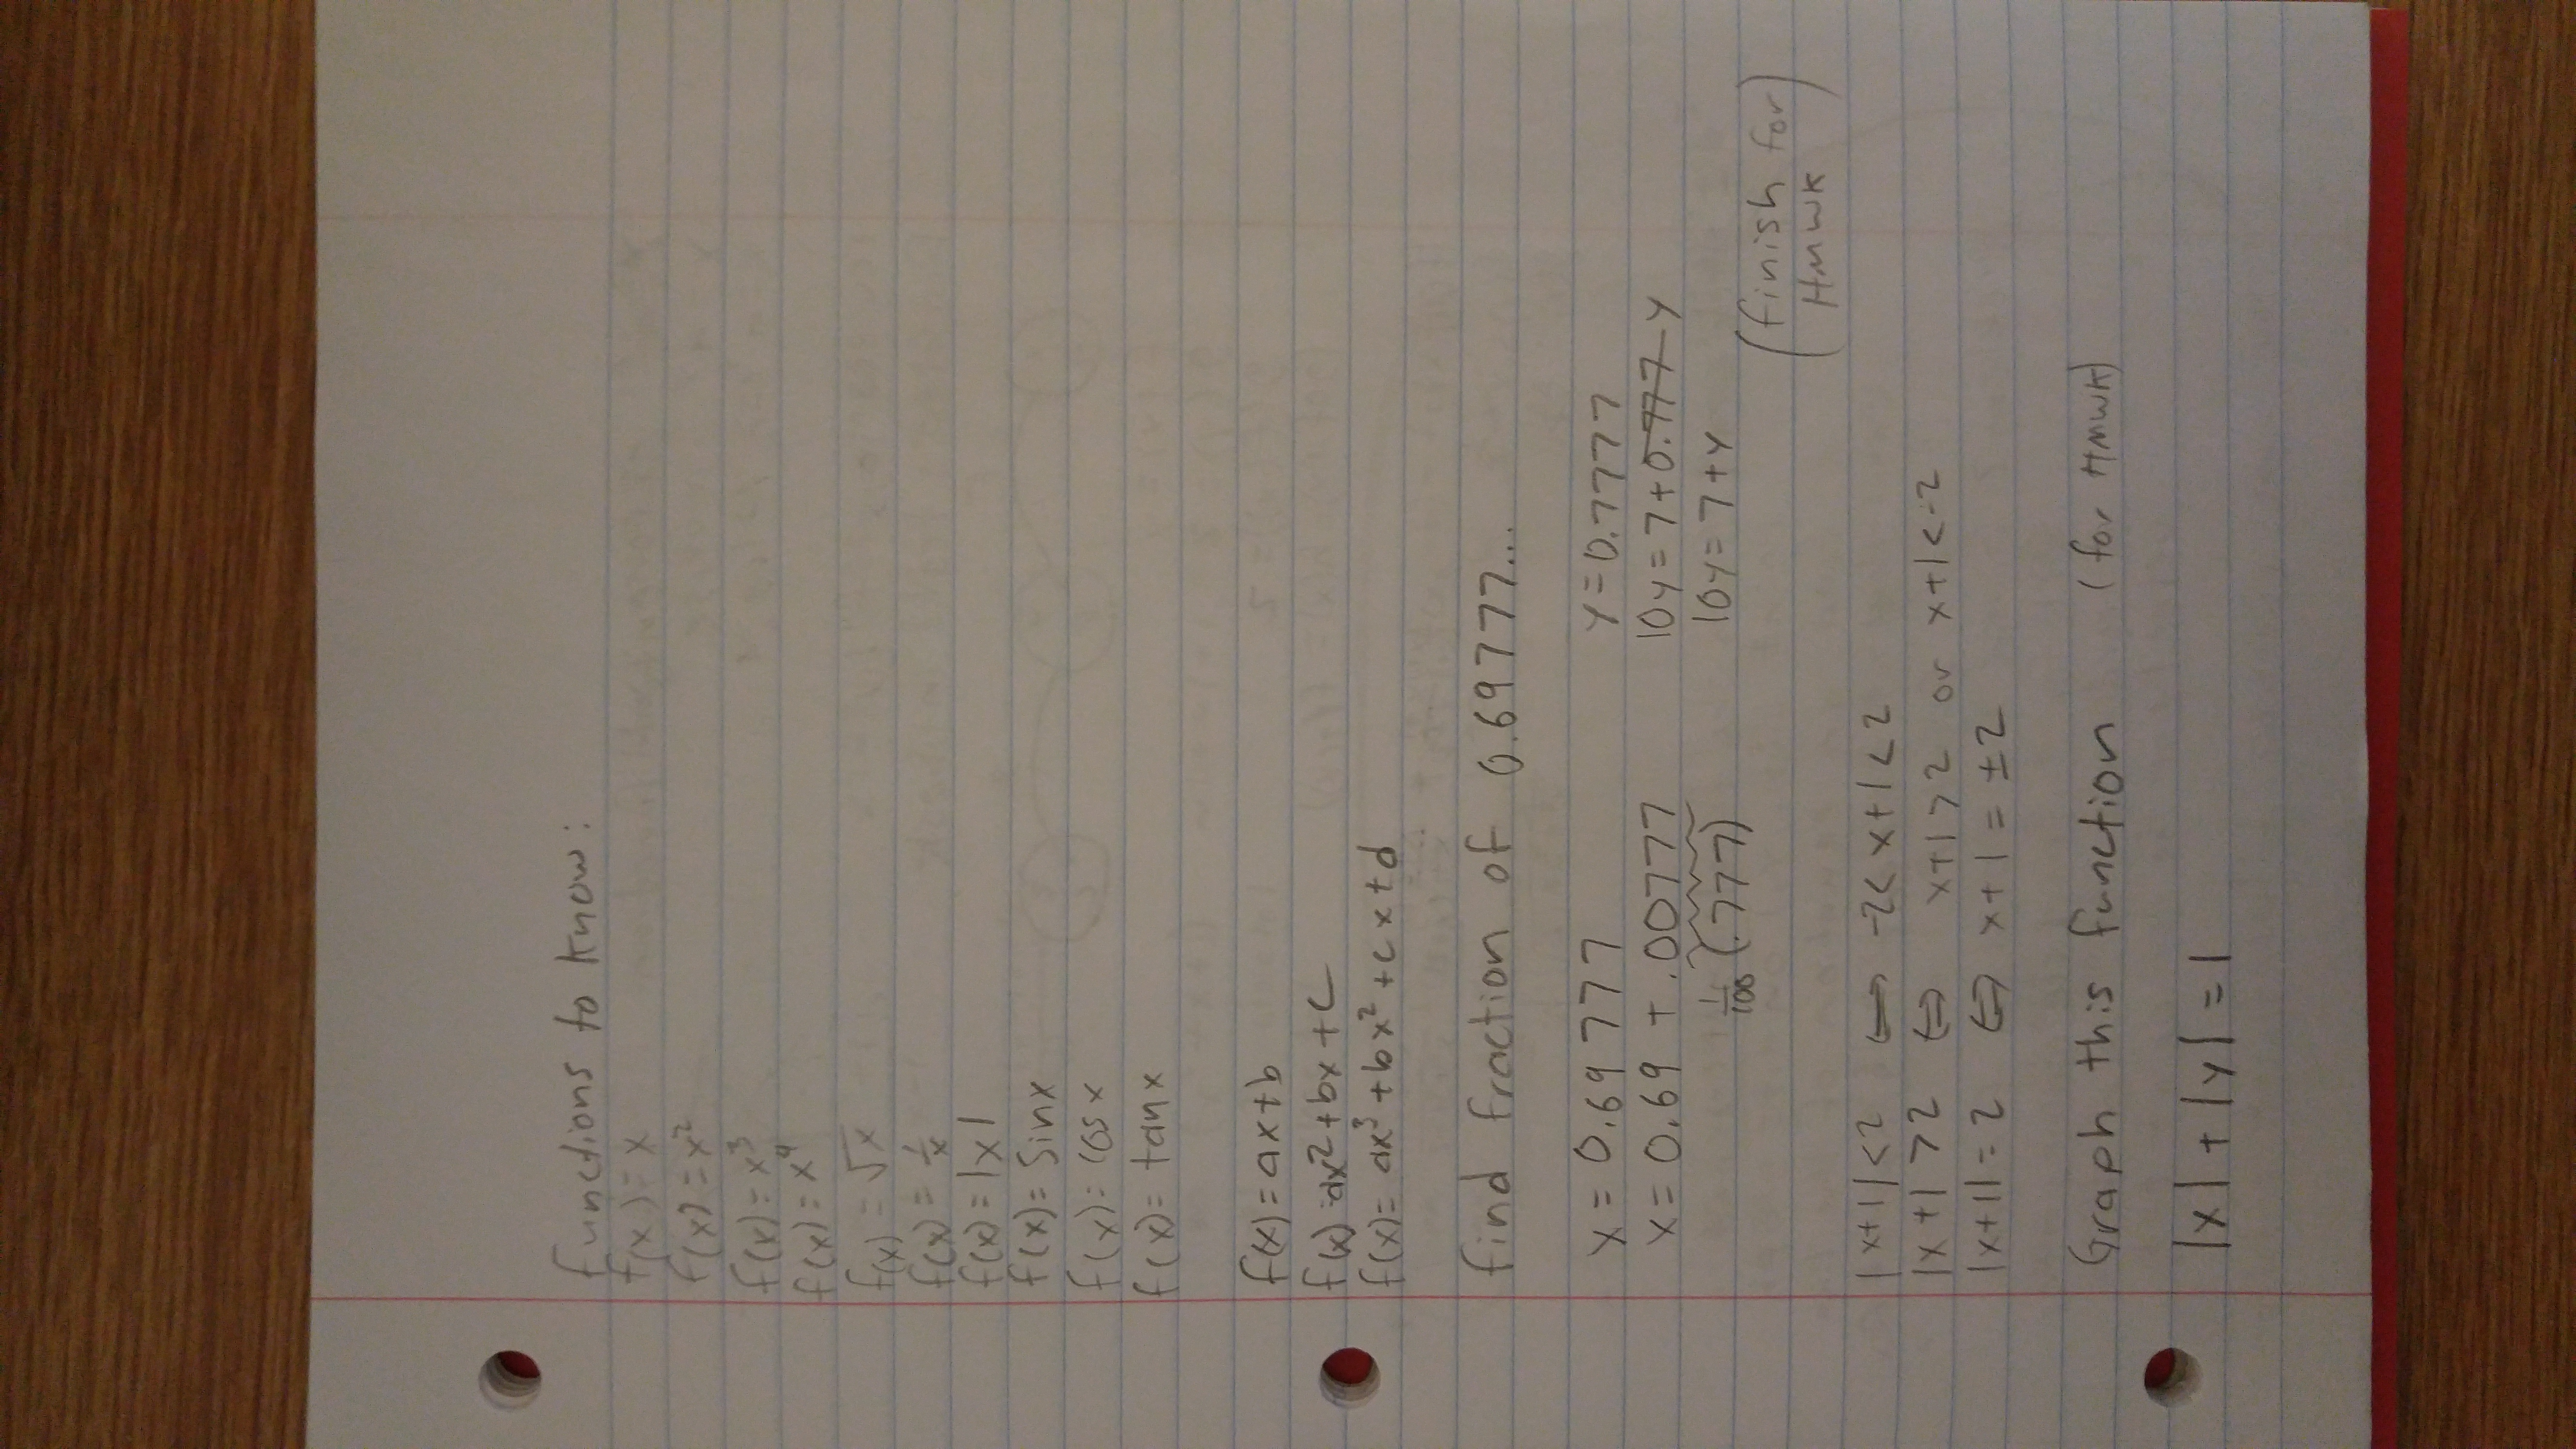 functions to know:
f(x)=x
f(x)=x²
f(x)=x³
f(x)=x⁴
f(x)=√x
f(x)=1/x
f(x)=|x|
f(x)=sinx
f(x)=cosx
f(x)=tanx
f(x)=ax+b
f(x)=ax²+bx+c
f(x)=ax³+bx²+cx+d
find fraction of 0.69777...
x=0.69777 y=0.7777
x=0.69+.00777 10y=7+0.777 y
1/100(.777) 10y=7+y
(finish for
Hmwk)
|x+1|<2 ⟺ -2<x+1<2
|x+1>2 ⟺ x+1>2 or x+1<-2
|x+1|=2 ⟺ x+1=±2
Graph this function (for HMWK)
|x|+|y|=1